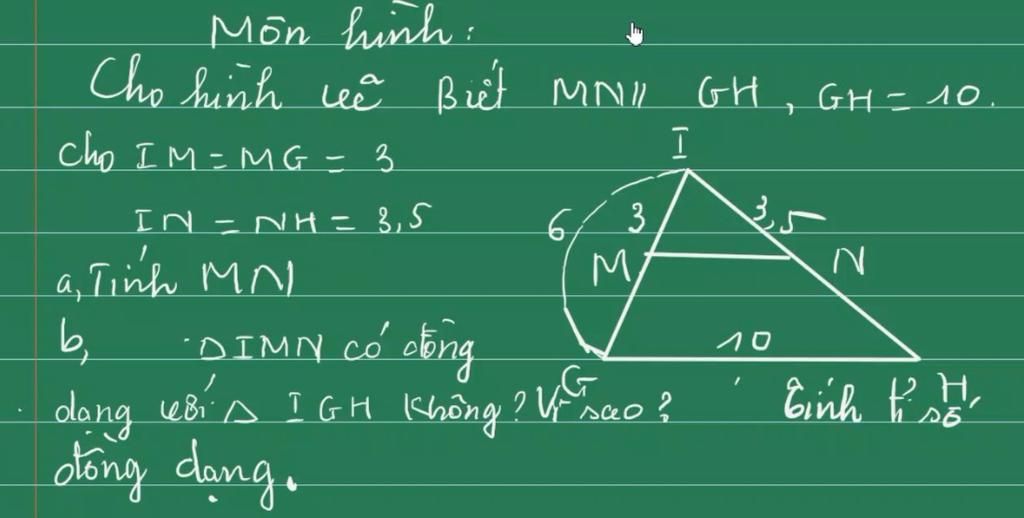 Môn hình:
Cho hình vẽ Biết MN// GH, GH = 10.
Cho IM = MG = 3
IN = NH = 3,5
a, Tính MN
b, ΔIMN có đồng
dạng với Δ IGH không? Vì sao? Tính tỉ số
đồng dạng.
I
6 3 3,5
M N
10
G H